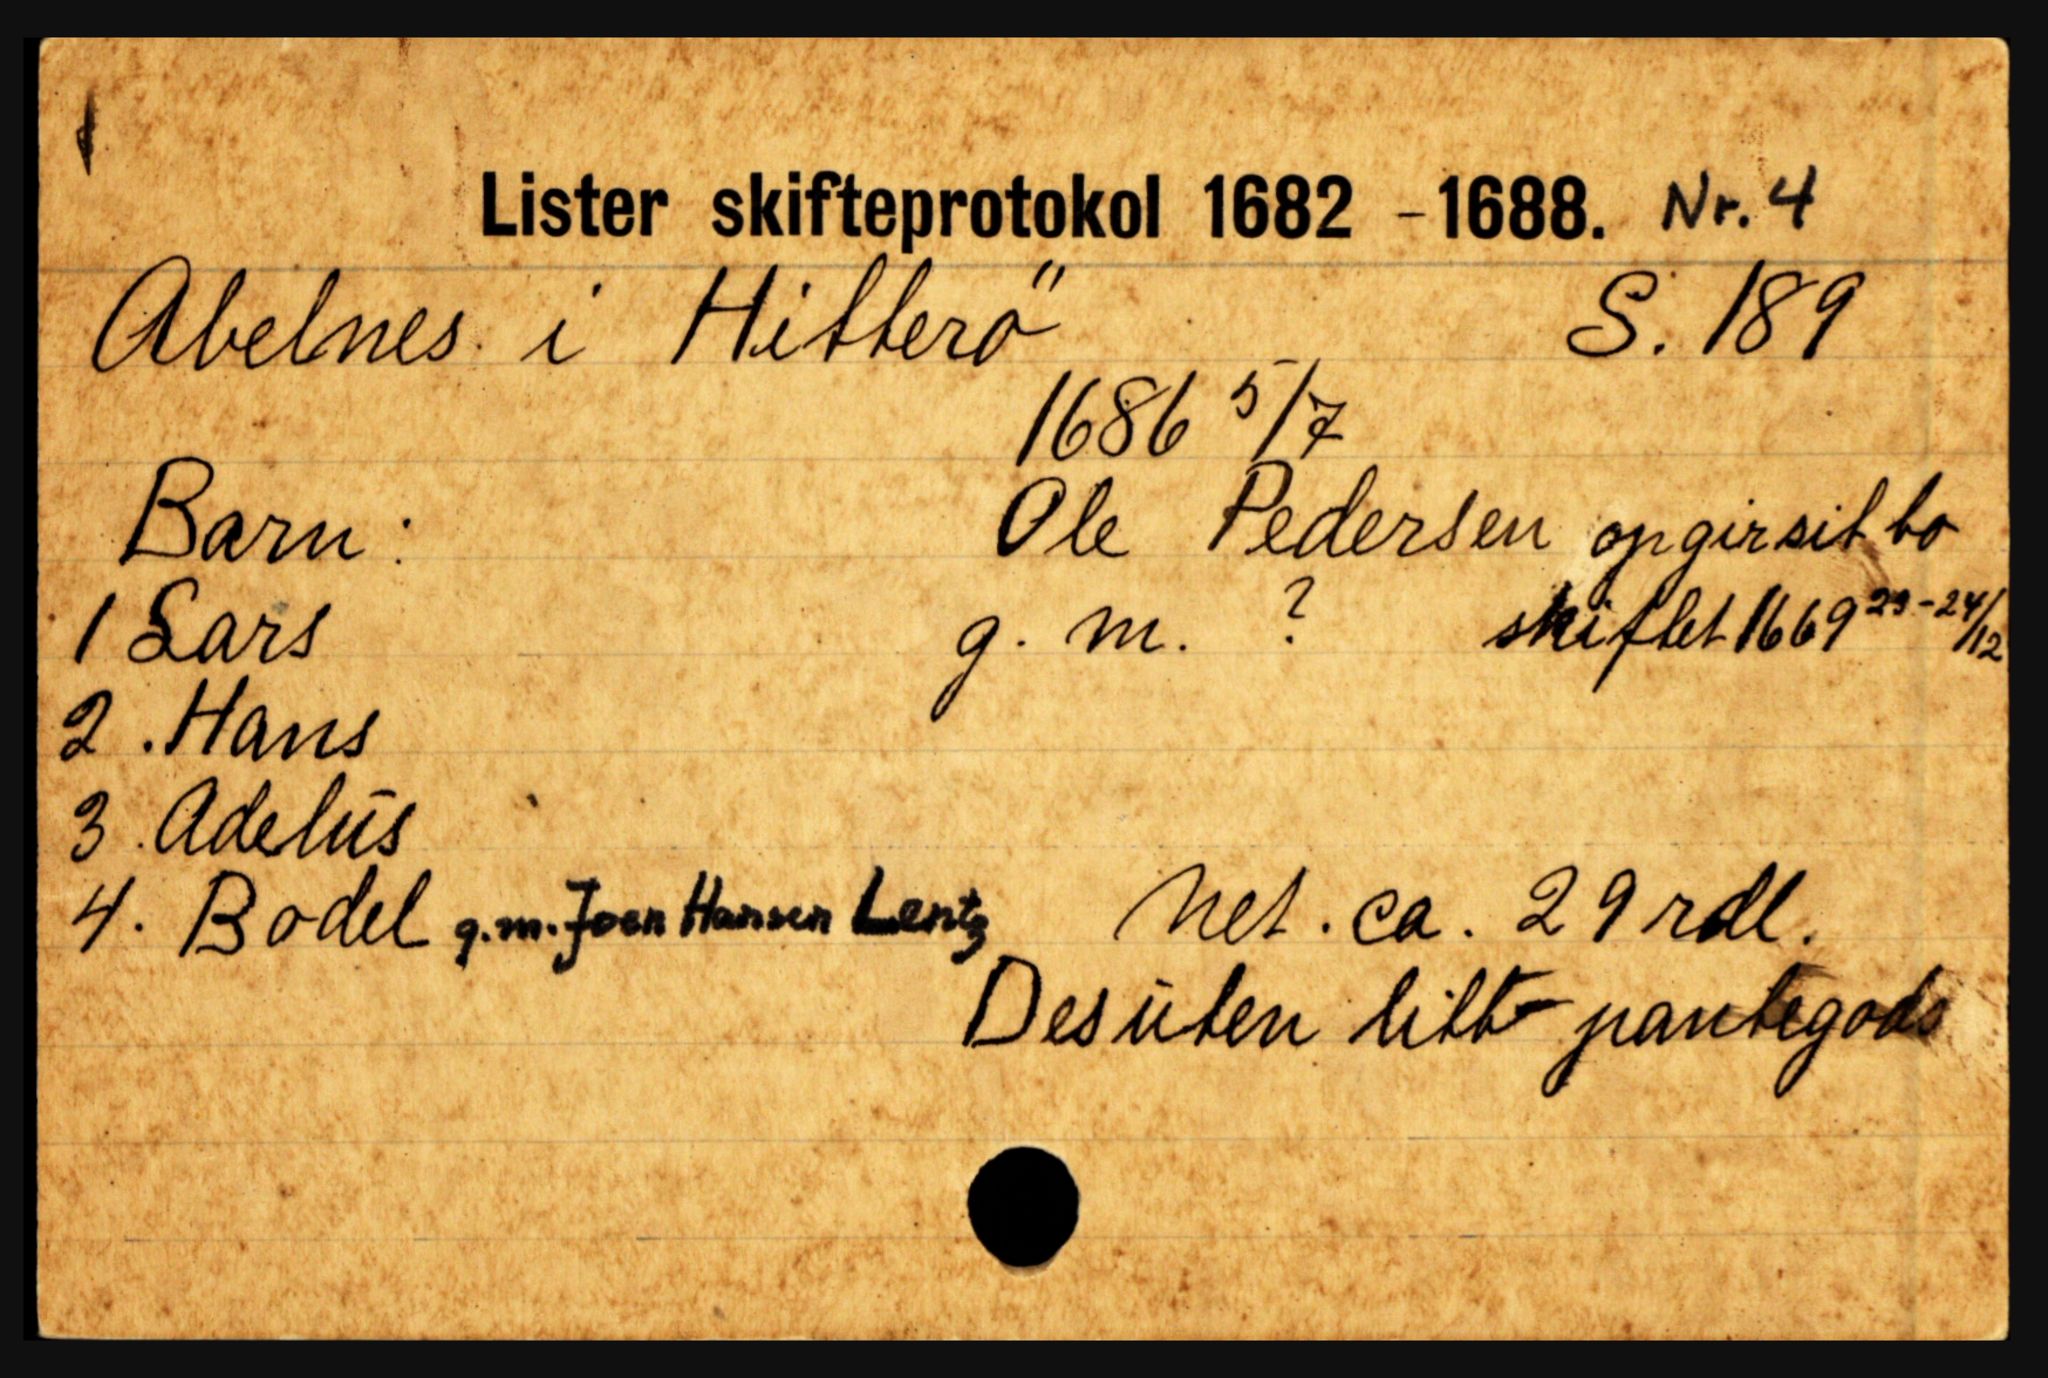 Lister skifteprotokol 1682 - 1688. Nr. 4
Abelnes i Hitterö S. 189
1686 5/7
Barn: Ole Pedersen opgir sit bo
1 Lars g. m. ? skiftet 1669 23-24/12
2. Hans
3. Adelus
4. Bodel g.m. Joen Hansen Lentz Net. ca. 29 rdl.
Desuten litt pantegods